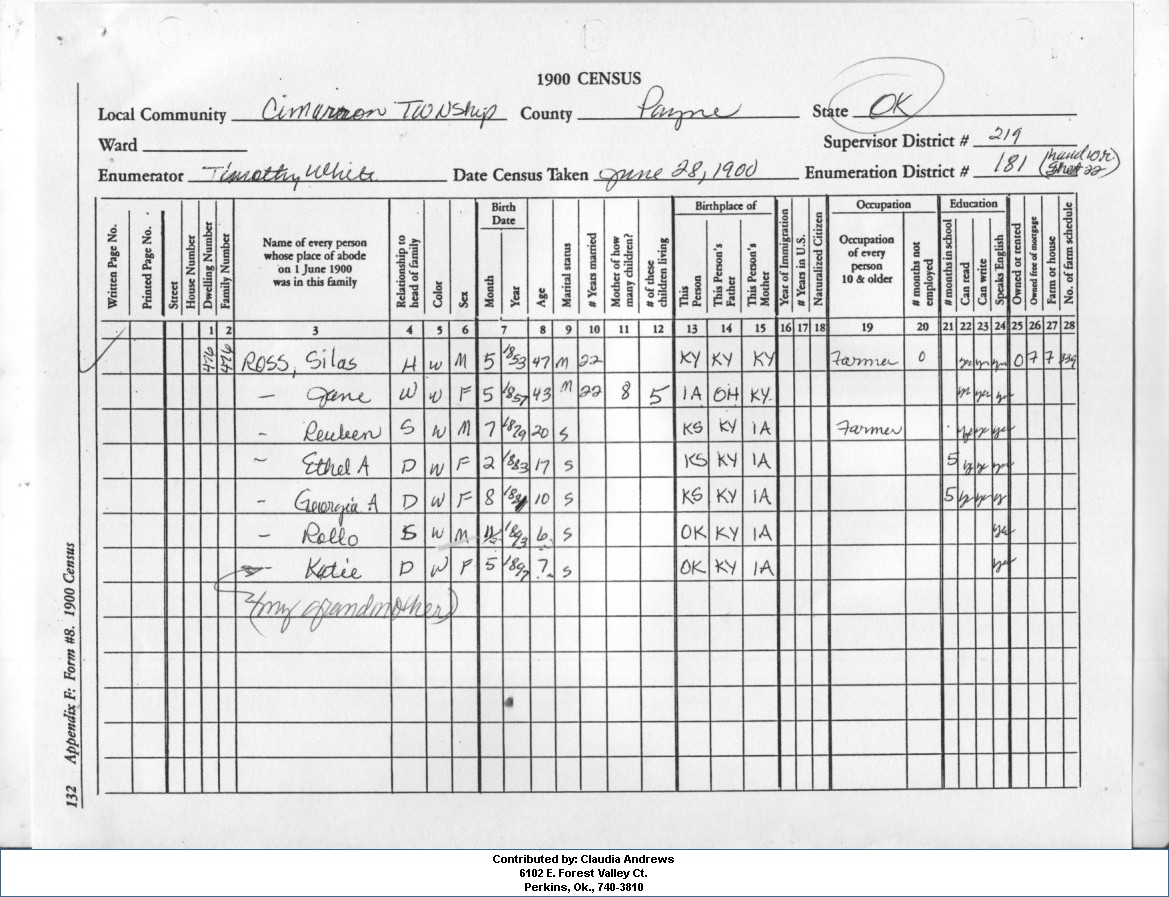 1900 CENSUS
Local Community Cimarron TWNship County Payne State OK
Ward Supervisor District # 219
Enumerator Timothy White Date Census Taken June 28, 1900 Enumeration District # 181 (handwr. Sheet 22)
Written Page No. Printed Page No. Street House Number Dwelling Number Family Number
Name of every person whose place of abode on 1 June 1900 was in this family
Relationship to head of family Color Sex
Birth Date Month Year
Age Marital status # Years married Mother of how many children? # of these children living
Birthplace of This Person This Person's Father This Person's Mother
Year of Immigration # Years in U.S. Naturalized Citizen
Occupation Occupation of every person 10 & older # months not employed
Education # months in school Can read Can write Speaks English
Owned or rented Owned free of mortgage Farm or house No. of farm schedule
1 2 3 4 5 6 7 8 9 10 11 12 13 14 15 16 17 18 19 20 21 22 23 24 25 26 27 28
476 476 ROSS, Silas H W M 5 1853 47 M 22 KY KY KY Farmer 0 yes yes yes O 7 7 339
– Jane W W F 5 1857 43 M 22 8 5 IA OH KY yes yes yes
– Reuben S W M 7 1879 20 S KS KY IA Farmer yes yes yes
– Ethel A D W F 2 1883 17 S KS KY IA 5 yes yes yes
– Georgia A D W F 8 10 S KS KY IA 5 yes yes yes
– Rollo S W M 1893 6 S OK KY IA yes
– Katie D W F 5 1897 ? S OK KY IA yes
(my grandmother)
132 Appendix F: Form #8. 1900 Census
Contributed by: Claudia Andrews
6102 E. Forest Valley Ct.
Perkins, Ok., 740-3810